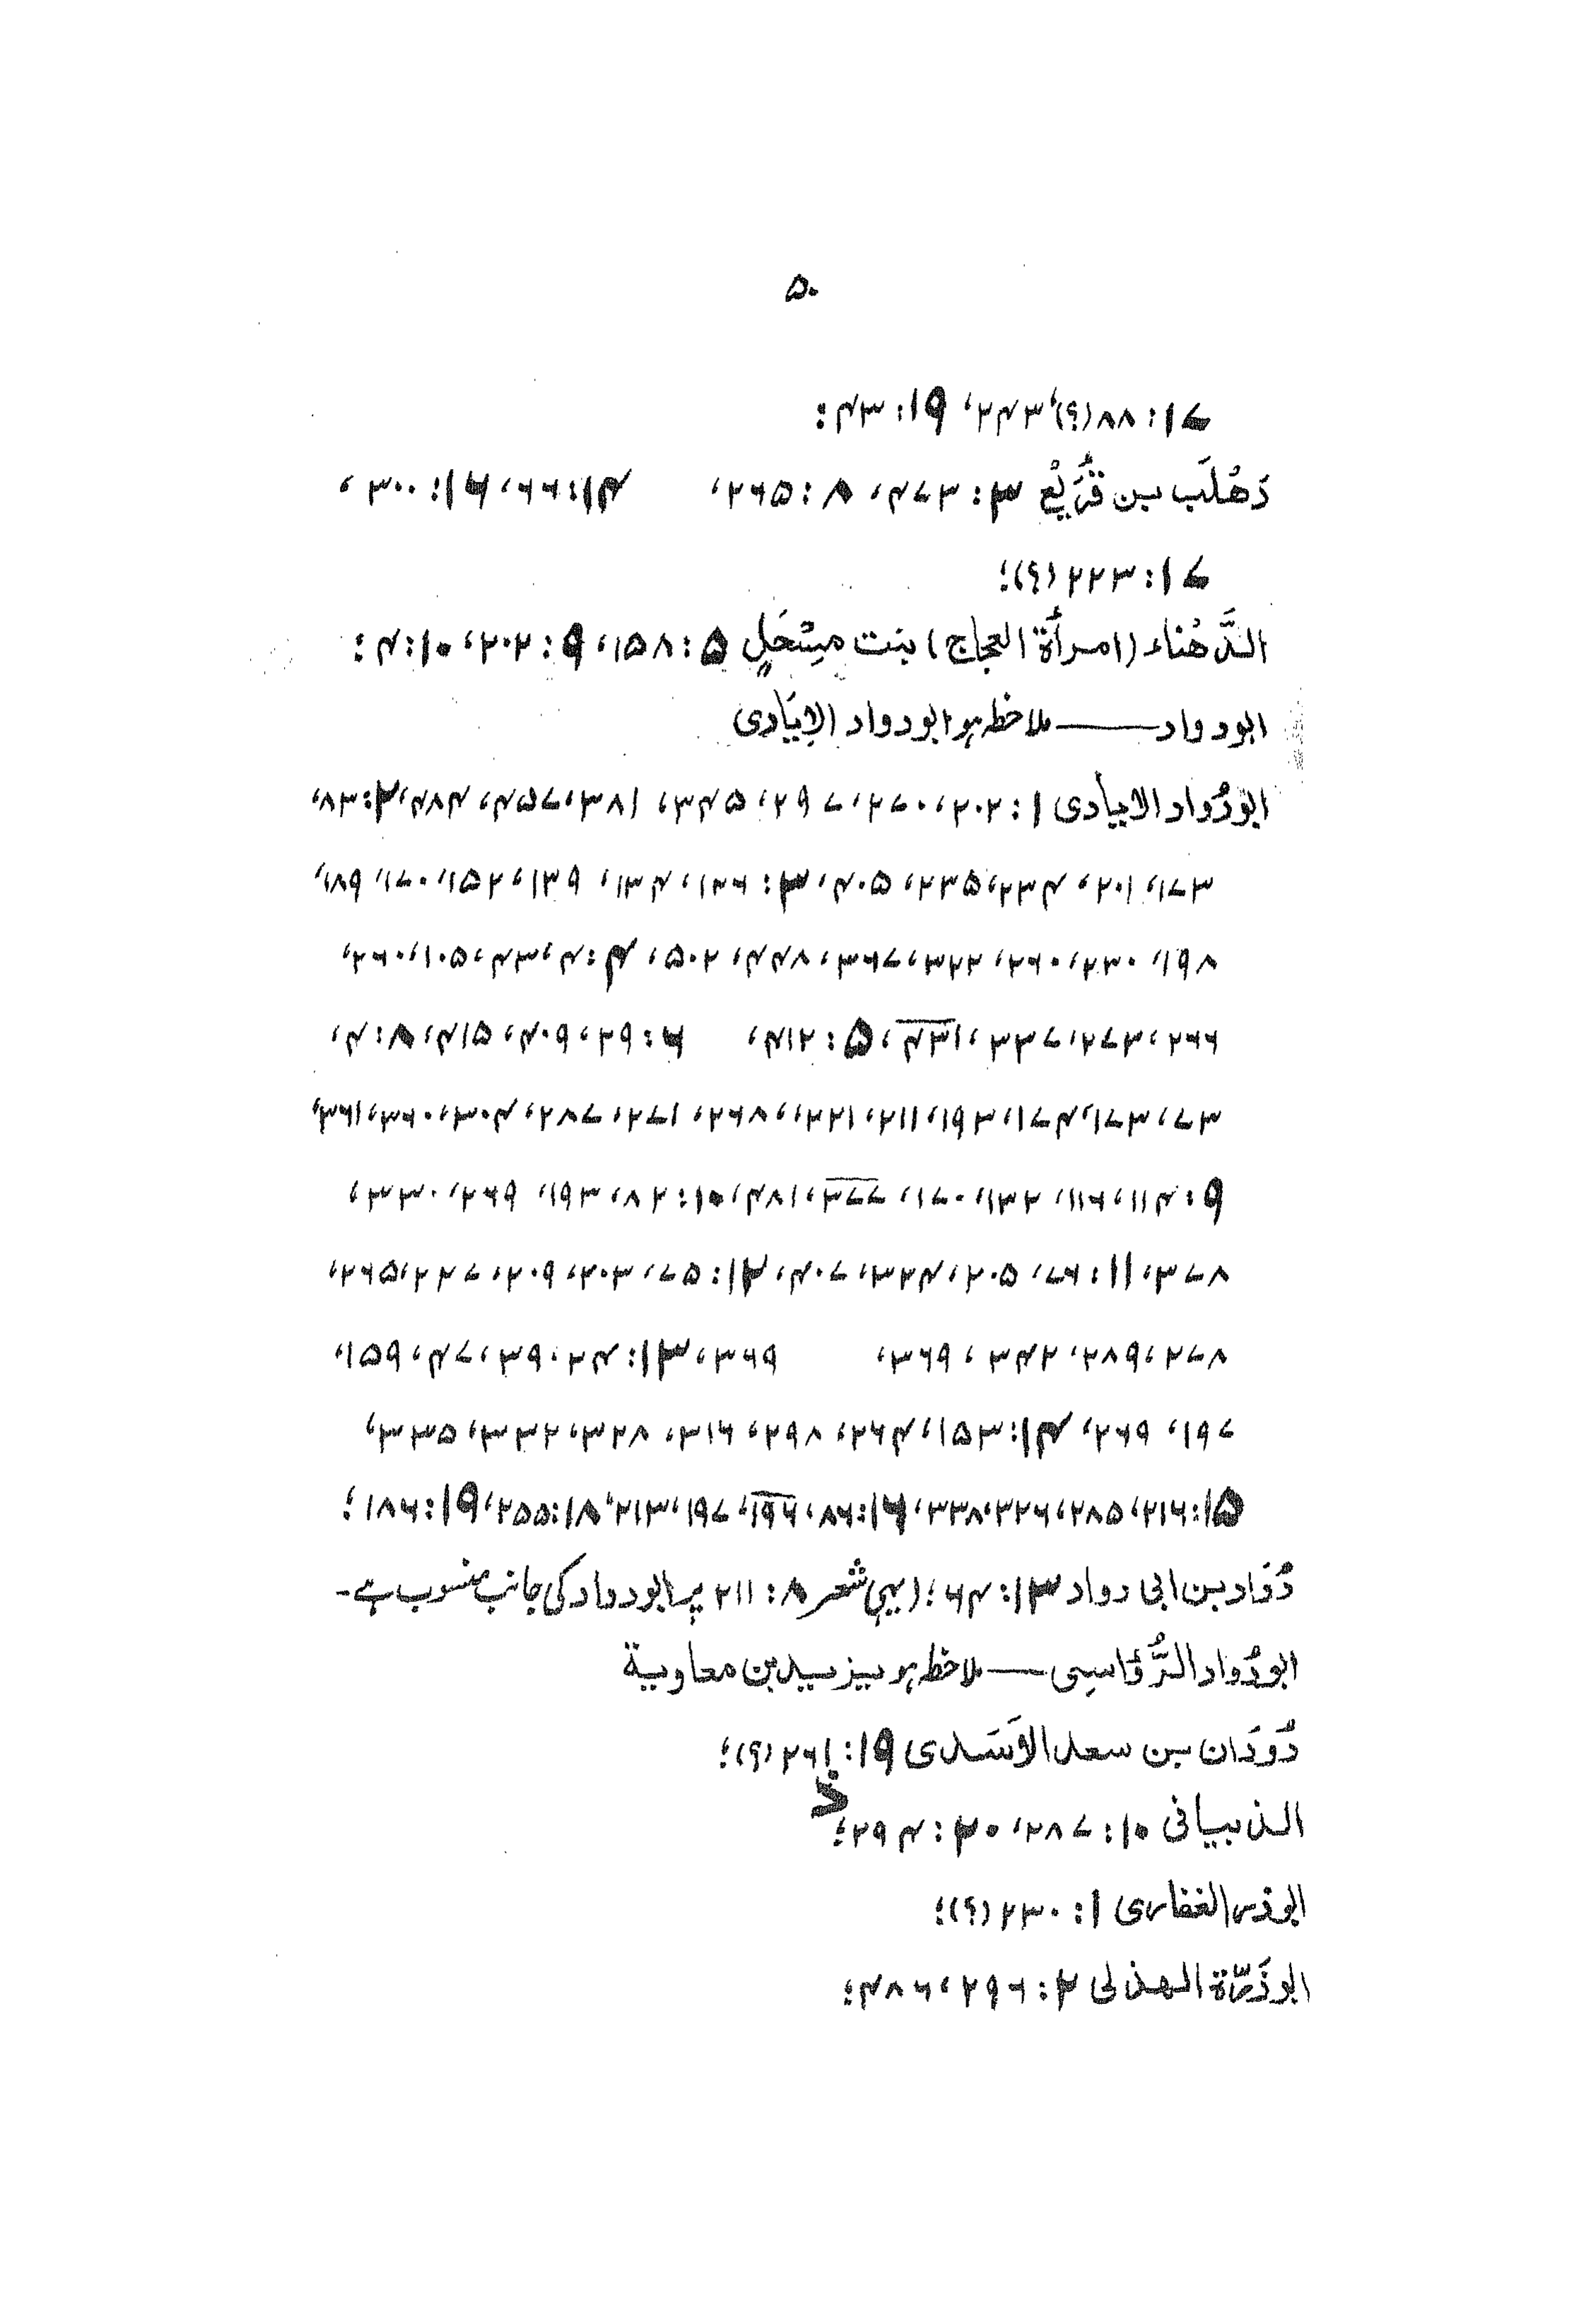 ۵۰
۱۷: ۸۸(؟)، ۲۴۳، ۱۹: ۴۳:
دَهْلَب بن قُرَیْع ۳: ۴۷۳، ۸: ۲۶۵، ۱۴: ۶۶، ۱۶: ۳۰۰،
۱۷: ۲۲۳(؟)؛
الدَّهْناء (امرأة العجاج) بنت مِسْحَلٍ ۵: ۱۵۸، ۹: ۲۰۲، ۱۰: ۴:
ابودواد —— ملاحظہ ہو ابودواد الاِیَادی
ابودُواد الایادی ۱: ۲۰۲، ۲۷۰، ۲۹۷، ۳۴۵، ۳۸۱، ۴۵۷، ۴۸۴، ۲: ۸۳،
۱۷۳، ۲۰۱، ۲۳۴، ۲۳۵، ۴۰۵، ۳: ۱۲۶، ۱۳۴، ۱۳۹، ۱۵۲، ۱۷۰، ۱۸۹،
۱۹۸، ۲۳۰، ۲۶۰، ۳۲۲، ۳۶۷، ۴۴۸، ۵۰۲، ۴: ۴، ۴۳، ۱۰۵، ۲۶۰،
۲۶۶، ۲۷۳، ۳۳۷، ۴۳۱، ۵: ۴۱۲، ۶: ۲۹، ۴۰۹، ۴۱۵، ۸: ۴،
۷۳، ۱۷۳، ۱۷۴، ۱۹۳، ۲۱۱، ۲۲۱، ۲۶۸، ۲۷۱، ۲۸۷، ۳۰۴، ۳۶۰، ۳۶۱،
۹: ۱۱۴، ۱۱۶، ۱۳۲، ۱۷۰، ۳۷۷، ۴۸۱، ۱۰: ۸۲، ۱۹۳، ۲۶۹، ۳۳۰،
۳۷۸، ۱۱: ۷۶، ۲۰۵، ۳۲۴، ۴۰۷، ۱۲: ۷۵، ۲۰۳، ۲۰۹، ۲۲۷، ۲۶۵،
۲۷۸، ۲۸۹، ۳۴۲، ۳۶۹، ۳۶۹، ۱۳: ۲۴، ۳۹، ۴۷، ۱۵۹،
۱۹۷، ۲۶۹، ۱۴: ۱۵۳، ۲۶۴، ۲۹۸، ۳۱۶، ۳۲۸، ۳۳۲، ۳۳۵،
۱۵: ۲۱۶، ۲۸۵، ۳۲۶، ۳۳۸، ۱۶: ۸۶، ۱۹۶، ۱۹۷، ۲۱۳، ۱۸: ۲۵۵، ۱۹: ۱۸۶؛
دُوَاد بن ابی دواد ۱۳: ۶۴؛ (یہی شعر ۸: ۲۱۱ پر ابودواد کی جانب منسوب ہے۔
ابودُواد الرُّؤاسِی —— ملاحظہ ہو یزید بن معاویة
دُودَان بن سعد الاَسَدی ۱۹: ۲۶۱(؟)؛
ذ
الذبیانی ۱۰: ۲۸۷، ۲۰: ۲۹۴؛
ابوذر الغفاری ۱: ۲۳۰(؟)؛
ابوذَرّة الهذلی ۲: ۲۹۶، ۴۸۶؛